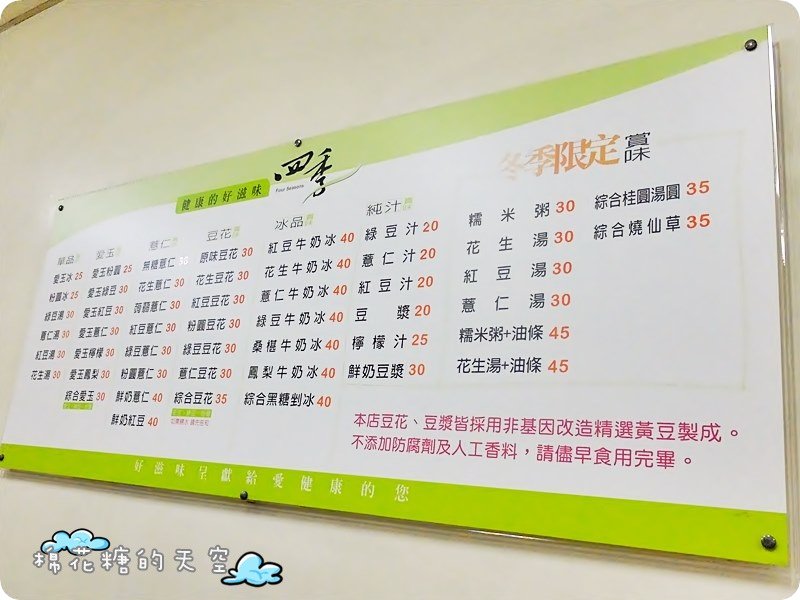 健康的好滋味
四季
Four Seasons
單品
愛玉冰 25
粉圓冰 25
綠豆湯 30
薏仁湯 30
紅豆湯 30
花生湯 30
愛玉
愛玉粉圓 25
愛玉綠豆 30
愛玉紅豆 30
愛玉薏仁 30
愛玉檸檬 30
愛玉鳳梨 30
綜合愛玉 30
薏仁
無糖薏仁 30
花生薏仁 30
蒟蒻薏仁 30
紅豆薏仁 30
綠豆薏仁 30
粉圓薏仁 30
鮮奶薏仁 40
鮮奶紅豆 40
豆花
原味豆花 30
花生豆花 30
紅豆豆花 30
粉圓豆花 30
綠豆豆花 30
薏仁豆花 30
綜合豆花 35
冰品
紅豆牛奶冰 40
花生牛奶冰 40
薏仁牛奶冰 40
綠豆牛奶冰 40
桑椹牛奶冰 40
鳳梨牛奶冰 40
綜合黑糖剉冰 40
純汁
綠豆汁 20
薏仁汁 20
紅豆汁 20
豆漿 20
檸檬汁 25
鮮奶豆漿 30
冬季限定賞味
糯米粥 30
花生湯 30
紅豆湯 30
薏仁湯 30
糯米粥+油條 45
花生湯+油條 45
綜合桂圓湯圓 35
綜合燒仙草 35
本店豆花、豆漿皆採用非基因改造精選黃豆製成。
不添加防腐劑及人工香料，請儘早食用完畢。
好滋味呈獻給愛健康的您
棉花糖的天空